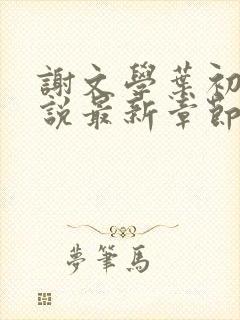 謝文學葉初
說最新章節
夢筆馬